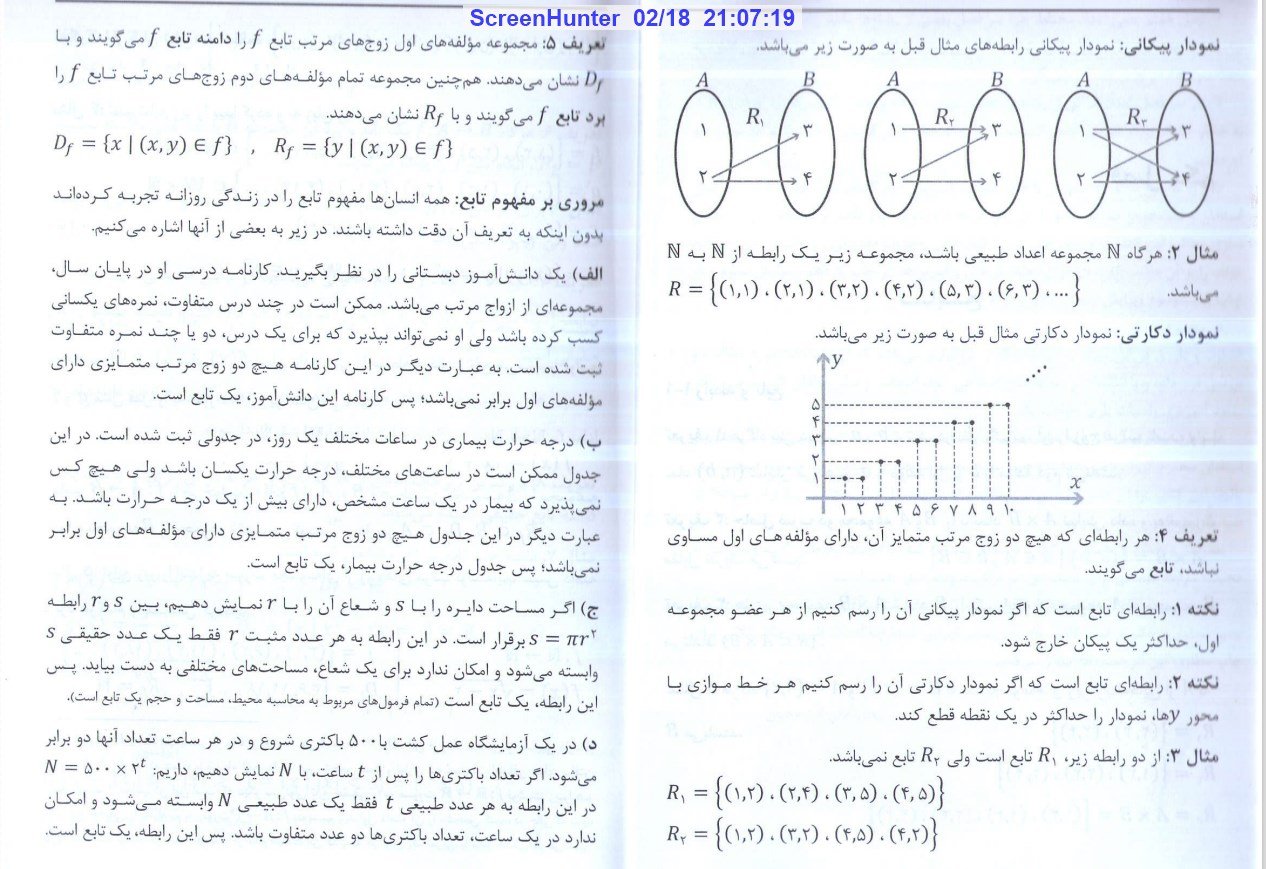 ScreenHunter 02/18 21:07:19
نمودار پیکانی: نمودار پیکانی رابطه‌های مثال قبل به صورت زیر می‌باشد.
A B A B A B
R₁ R₂ R₃
۱ ۳ ۱ ۳ ۱ ۳
۲ ۴ ۲ ۴ ۲ ۴
مثال ۲: هرگاه ℕ مجموعه اعداد طبیعی باشد، مجموعه زیر یک رابطه از ℕ به ℕ
می‌باشد. R = {(۱,۱) ، (۲,۱) ، (۳,۲) ، (۴,۲) ، (۵,۳) ، (۶,۳) ، ...}
نمودار دکارتی: نمودار دکارتی مثال قبل به صورت زیر می‌باشد.
y
۵
۴
۳
۲
۱
x
۱ ۲ ۳ ۴ ۵ ۶ ۷ ۸ ۹ ۱۰
تعریف ۴: هر رابطه‌ای که هیچ دو زوج مرتب متمایز آن، دارای مؤلفه های اول مساوی
نباشد، تابع می‌گویند.
نکته ۱: رابطه‌ای تابع است که اگر نمودار پیکانی آن را رسم کنیم از هر عضو مجموعه
اول، حداکثر یک پیکان خارج شود.
نکته ۲: رابطه‌ای تابع است که اگر نمودار دکارتی آن را رسم کنیم هر خط موازی با
محور yها، نمودار را حداکثر در یک نقطه قطع کند.
مثال ۳: از دو رابطه زیر، R₁ تابع است ولی R₂ تابع نمی‌باشد.
R₁ = {(۱,۲) ، (۲,۴) ، (۳,۵) ، (۴,۵)}
R₂ = {(۱,۲) ، (۳,۲) ، (۴,۵) ، (۴,۲)}
تعریف ۵: مجموعه مؤلفه‌های اول زوج‌های مرتب تابع f را دامنه تابع f می‌گویند و با
D_f نشان می‌دهند. هم‌چنین مجموعه تمام مؤلفه‌های دوم زوج‌های مرتب تابع f را
برد تابع f می‌گویند و با R_f نشان می‌دهند.
D_f = {x | (x, y) ∈ f} , R_f = {y | (x, y) ∈ f}
مروری بر مفهوم تابع: همه انسان‌ها مفهوم تابع را در زندگی روزانه تجربه کرده‌اند
بدون اینکه به تعریف آن دقت داشته باشند. در زیر به بعضی از آنها اشاره می‌کنیم.
الف) یک دانش‌آموز دبستانی را در نظر بگیرید. کارنامه درسی او در پایان سال،
مجموعه‌ای از ازواج مرتب می‌باشد. ممکن است در چند درس متفاوت، نمره‌های یکسانی
کسب کرده باشد ولی او نمی‌تواند بپذیرد که برای یک درس، دو یا چند نمره متفاوت
ثبت شده است. به عبارت دیگر در این کارنامه هیچ دو زوج مرتب متمایزی دارای
مؤلفه‌های اول برابر نمی‌باشد؛ پس کارنامه این دانش‌آموز، یک تابع است.
ب) درجه حرارت بیماری در ساعات مختلف یک روز، در جدولی ثبت شده است. در این
جدول ممکن است در ساعت‌های مختلف، درجه حرارت یکسان باشد ولی هیچ کس
نمی‌پذیرد که بیمار در یک ساعت مشخص، دارای بیش از یک درجه حرارت باشد. به
عبارت دیگر در این جدول هیچ دو زوج مرتب متمایزی دارای مؤلفه‌های اول برابر
نمی‌باشد؛ پس جدول درجه حرارت بیمار، یک تابع است.
ج) اگر مساحت دایره را با s و شعاع آن را با r نمایش دهیم، بین s و r رابطه
s = πr² برقرار است. در این رابطه به هر عدد مثبت r فقط یک عدد حقیقی s
وابسته می‌شود و امکان ندارد برای یک شعاع، مساحت‌های مختلفی به دست بیاید. پس
این رابطه، یک تابع است (تمام فرمول‌های مربوط به محاسبه محیط، مساحت و حجم یک تابع است).
د) در یک آزمایشگاه عمل کشت با ۵۰۰ باکتری شروع و در هر ساعت تعداد آنها دو برابر
می‌شود. اگر تعداد باکتری‌ها را پس از t ساعت، با N نمایش دهیم، داریم: N = ۵۰۰ × ۲ᵗ
در این رابطه به هر عدد طبیعی t فقط یک عدد طبیعی N وابسته می‌شود و امکان
ندارد در یک ساعت، تعداد باکتری‌ها دو عدد متفاوت باشد. پس این رابطه، یک تابع است.